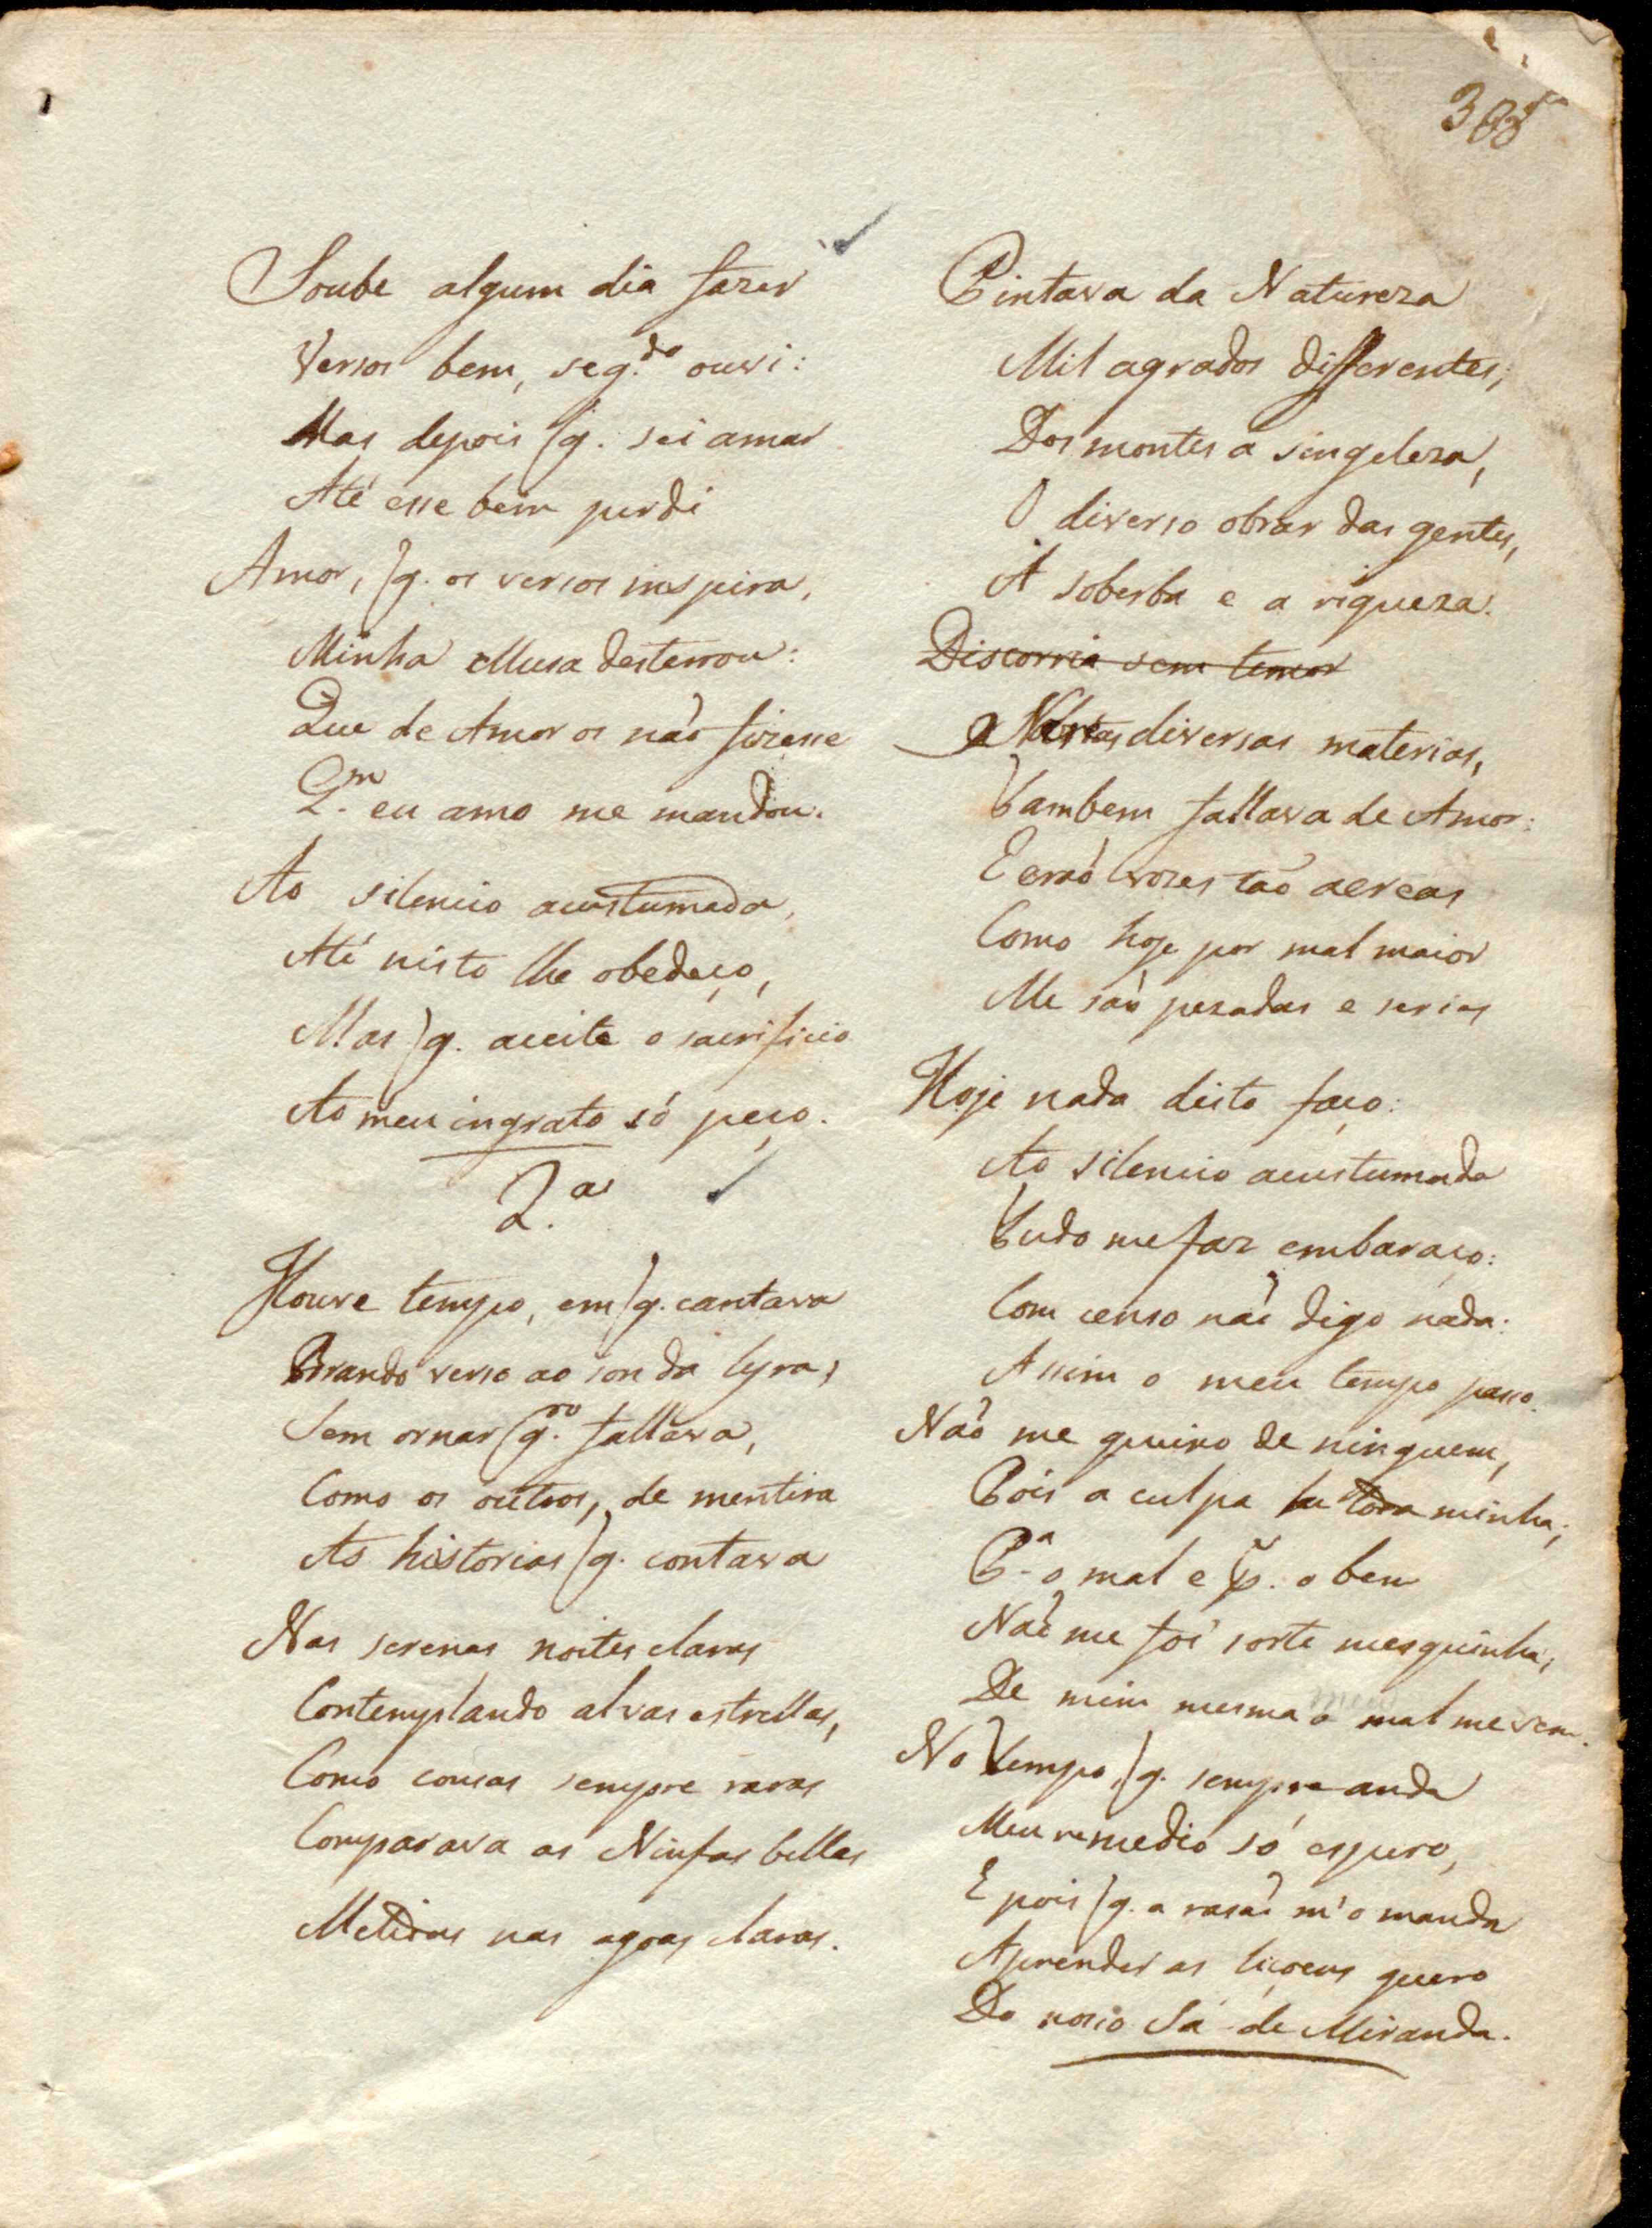 Soube algum dia fazer
Versos bem, seg.do ouvi:
Mas depois q. sei amar
Até esse bem perdi
Amor, q. os versos inspira,
Minha Musa desterrou:
Que de Amor os não fizesse
Q.m eu amo me mandou.
Ao silencio acustumada,
Até nisto lhe obedeço,
Mas q. aceite o sacrificio
Ao meu ingrato só peço.
2.a
Houve tempo, em q. cantava
Brando verso ao son da lyra,
Sem ornar q.to fallava,
Como os outros, de mentira
As historias q. contava
Nas serenas noites claras
Contemplando alvas estrellas,
Como cousas sempre raras
Comparava as Ninfas bellas
Metidas nas agoas claras.
Pintava da Natureza
Mil agrados differentes,
Dos montes a singeleza,
O diverso obrar das gentes,
A soberba e a riqueza.
Discorria sem temor
diversas materias,
Tambem fallava de Amor:
E eraõ vozes taõ aereas
Como hoje por mal maior
Me saõ pezadas e serias
Hoje nada disto faço:
Ao silencio acustumada
Tudo me faz embaraço:
Com censo naõ digo nada:
Assim o meu tempo passo.
Naõ me queixo de ninguem,
Pois a culpa he toda minha;
P.a o mal e p. o bem
Naõ me foi sorte mesquinha,
De mim mesma o mal me vem.
No Tempo, q. sempre anda
Meu remedio só espero,
E pois q. a rasaõ m'o manda
Aprender as liçoens quero
Do nosso Sá de Miranda.